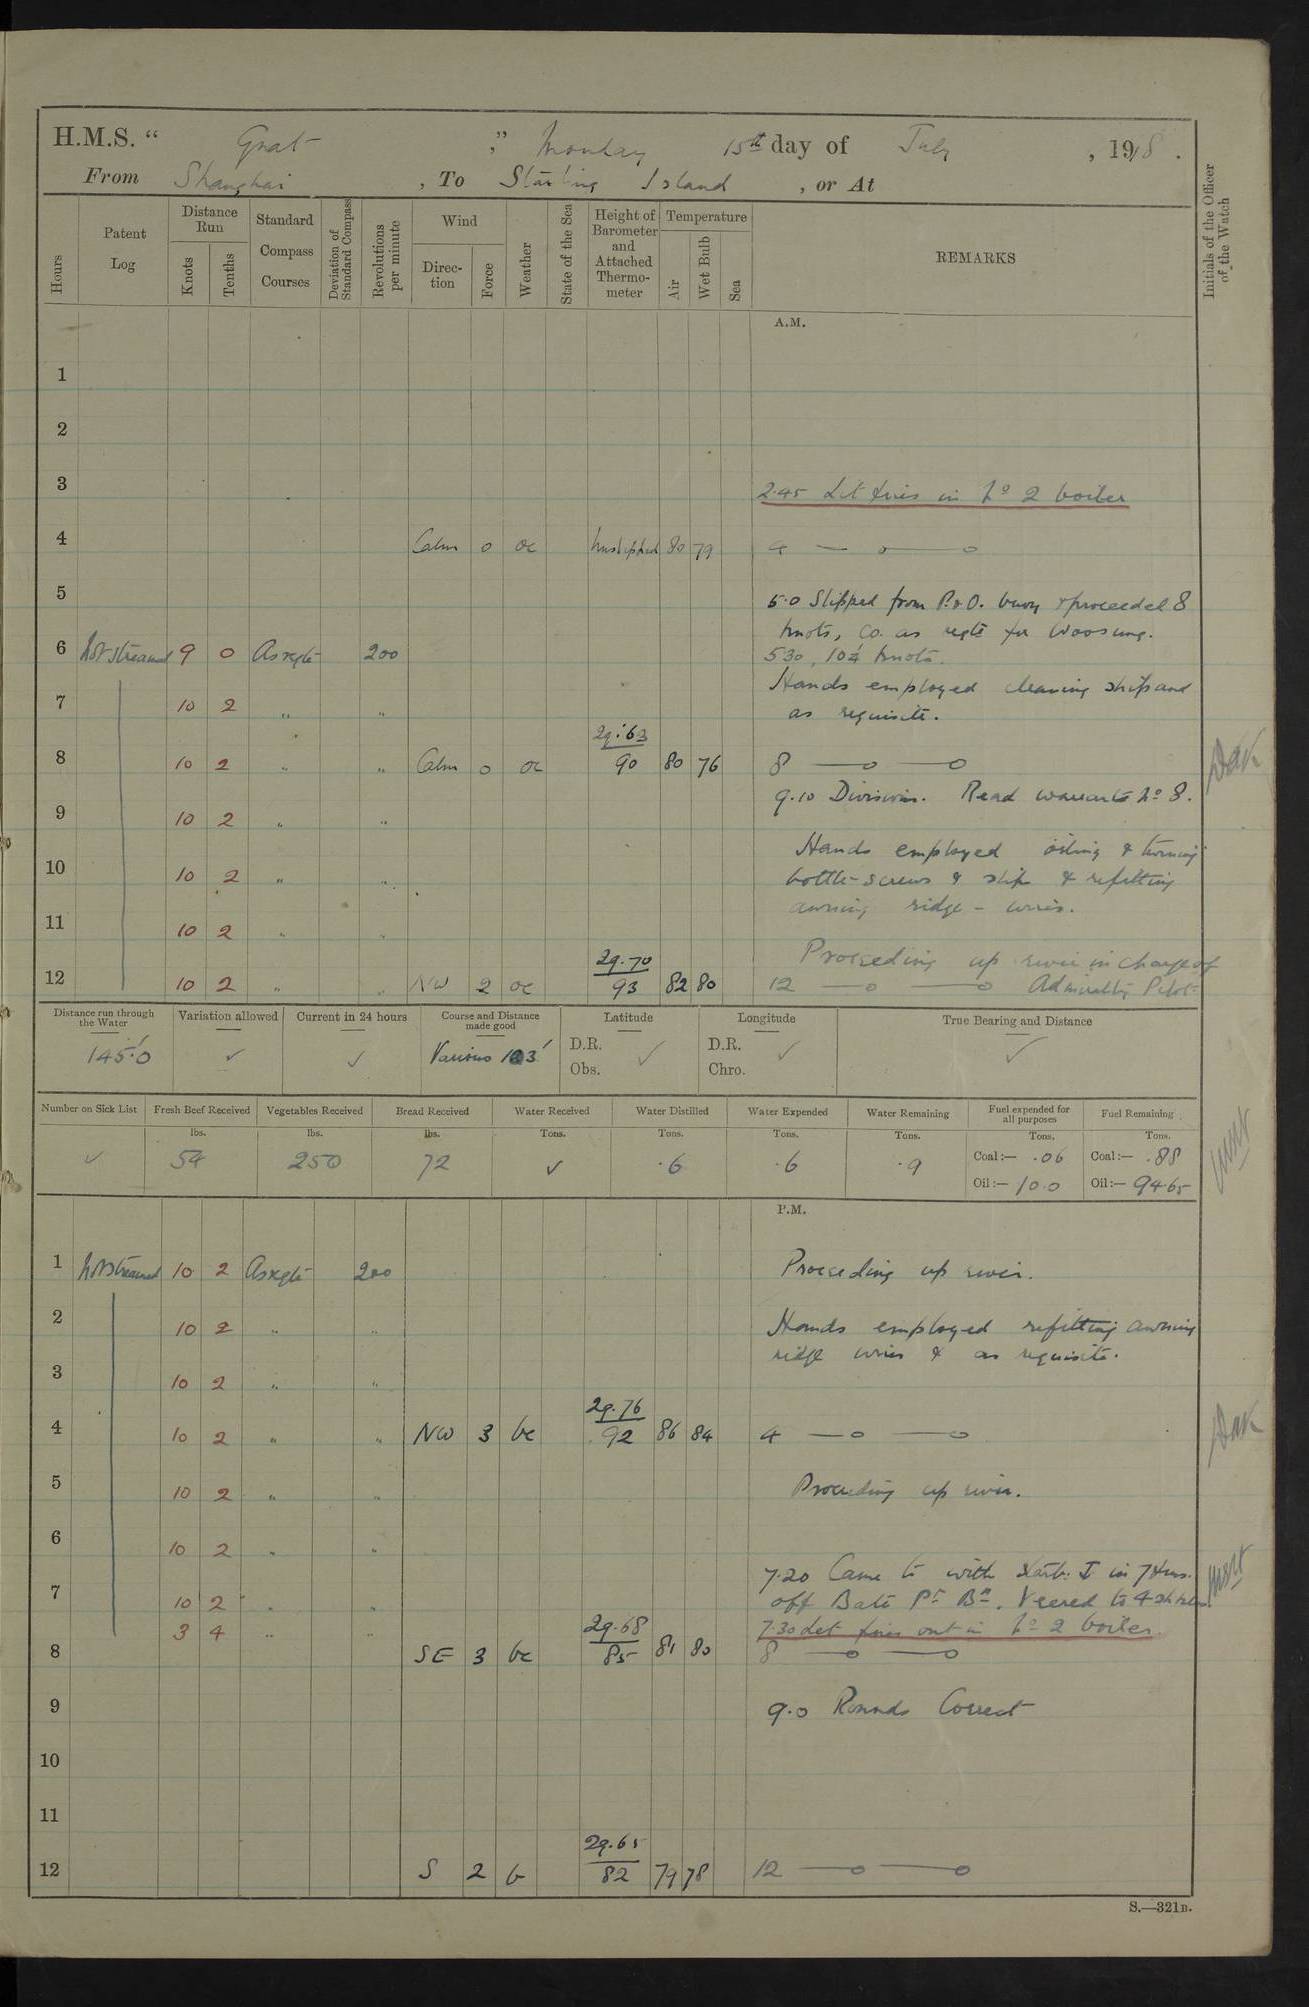 H.M.S. “ Gnat ” Monday 15th day of July , 1918 .
From Shanghai , To Starling Island , or At
Hours
Patent Log
Distance Run
Knots
Tenths
Standard Compass Courses
Deviation of Standard Compass
Revolutions per minute
Wind
Direction
Force
Weather
State of the Sea
Height of Barometer and Attached Thermometer
Temperature
Air
Wet Bulb
Sea
REMARKS
Initials of the Officer of the Watch
A.M.
1
2
3 2.45 Lit fires in No 2 boiler
4 Calm 0 oc Unshipped 80 79 4
5 5.0 Slipped from P.&O. buoy & proceeded 8
knots, Co. as reqte for Woosung.
6 Not streamed 9 0 As reqte 200 5.30, 10¼ knots.
Hands employed cleaning ship and
7 10 2 " " as requisite.
29.63
8 10 2 " " Calm 0 oc 90 80 76 8
9.10 Divisions. Read warrants No 8.
9 10 2 " "
Hands employed oiling &
10 10 2 " " bottle-screws & slips & refitting
awning ridge - wires.
11 10 2 " "
29.70 Proceeding up river in charge of
12 10 2 " " NW 2 oc 93 82 80 12 Admiralty Pilot
Distance run through the Water
Variation allowed
Current in 24 hours
Course and Distance made good
Latitude
Longitude
True Bearing and Distance
145.0 ✓ ✓ Various D.R. Obs. ✓ D.R. Chro. ✓ ✓
Number on Sick List
Fresh Beef Received
Vegetables Received
Bread Received
Water Received
Water Distilled
Water Expended
Water Remaining
Fuel expended for all purposes
Fuel Remaining
lbs. lbs. lbs. Tons. Tons. Tons. Tons. Tons. Tons.
✓ 54 250 72 ✓ .6 .6 .9 Coal:— .06 Coal:— .88
Oil:— 10.0 Oil:— 94.65
P.M.
1 Not streamed 10 2 As reqte 200 Proceeding up river.
2 10 2 " " Hands employed refitting awning
ridge wires & as requisite.
3 10 2 " "
29.76
4 10 2 " " NW 3 bc 92 86 84 4
5 10 2 " " Proceeding up river.
6 10 2 " "
7.20 Came to with starb: in 7 fms.
7 10 2 " " off Bate Pt Bn. Veered to 4 shkles.
3 4 " " 29.68 7.30 Let fires out in No 2 boiler.
8 SE 3 bc 85 81 80 8
9 9.0 Rounds Correct
10
11
29.65
12 S 2 b 82 79 78 12
S.—321D.